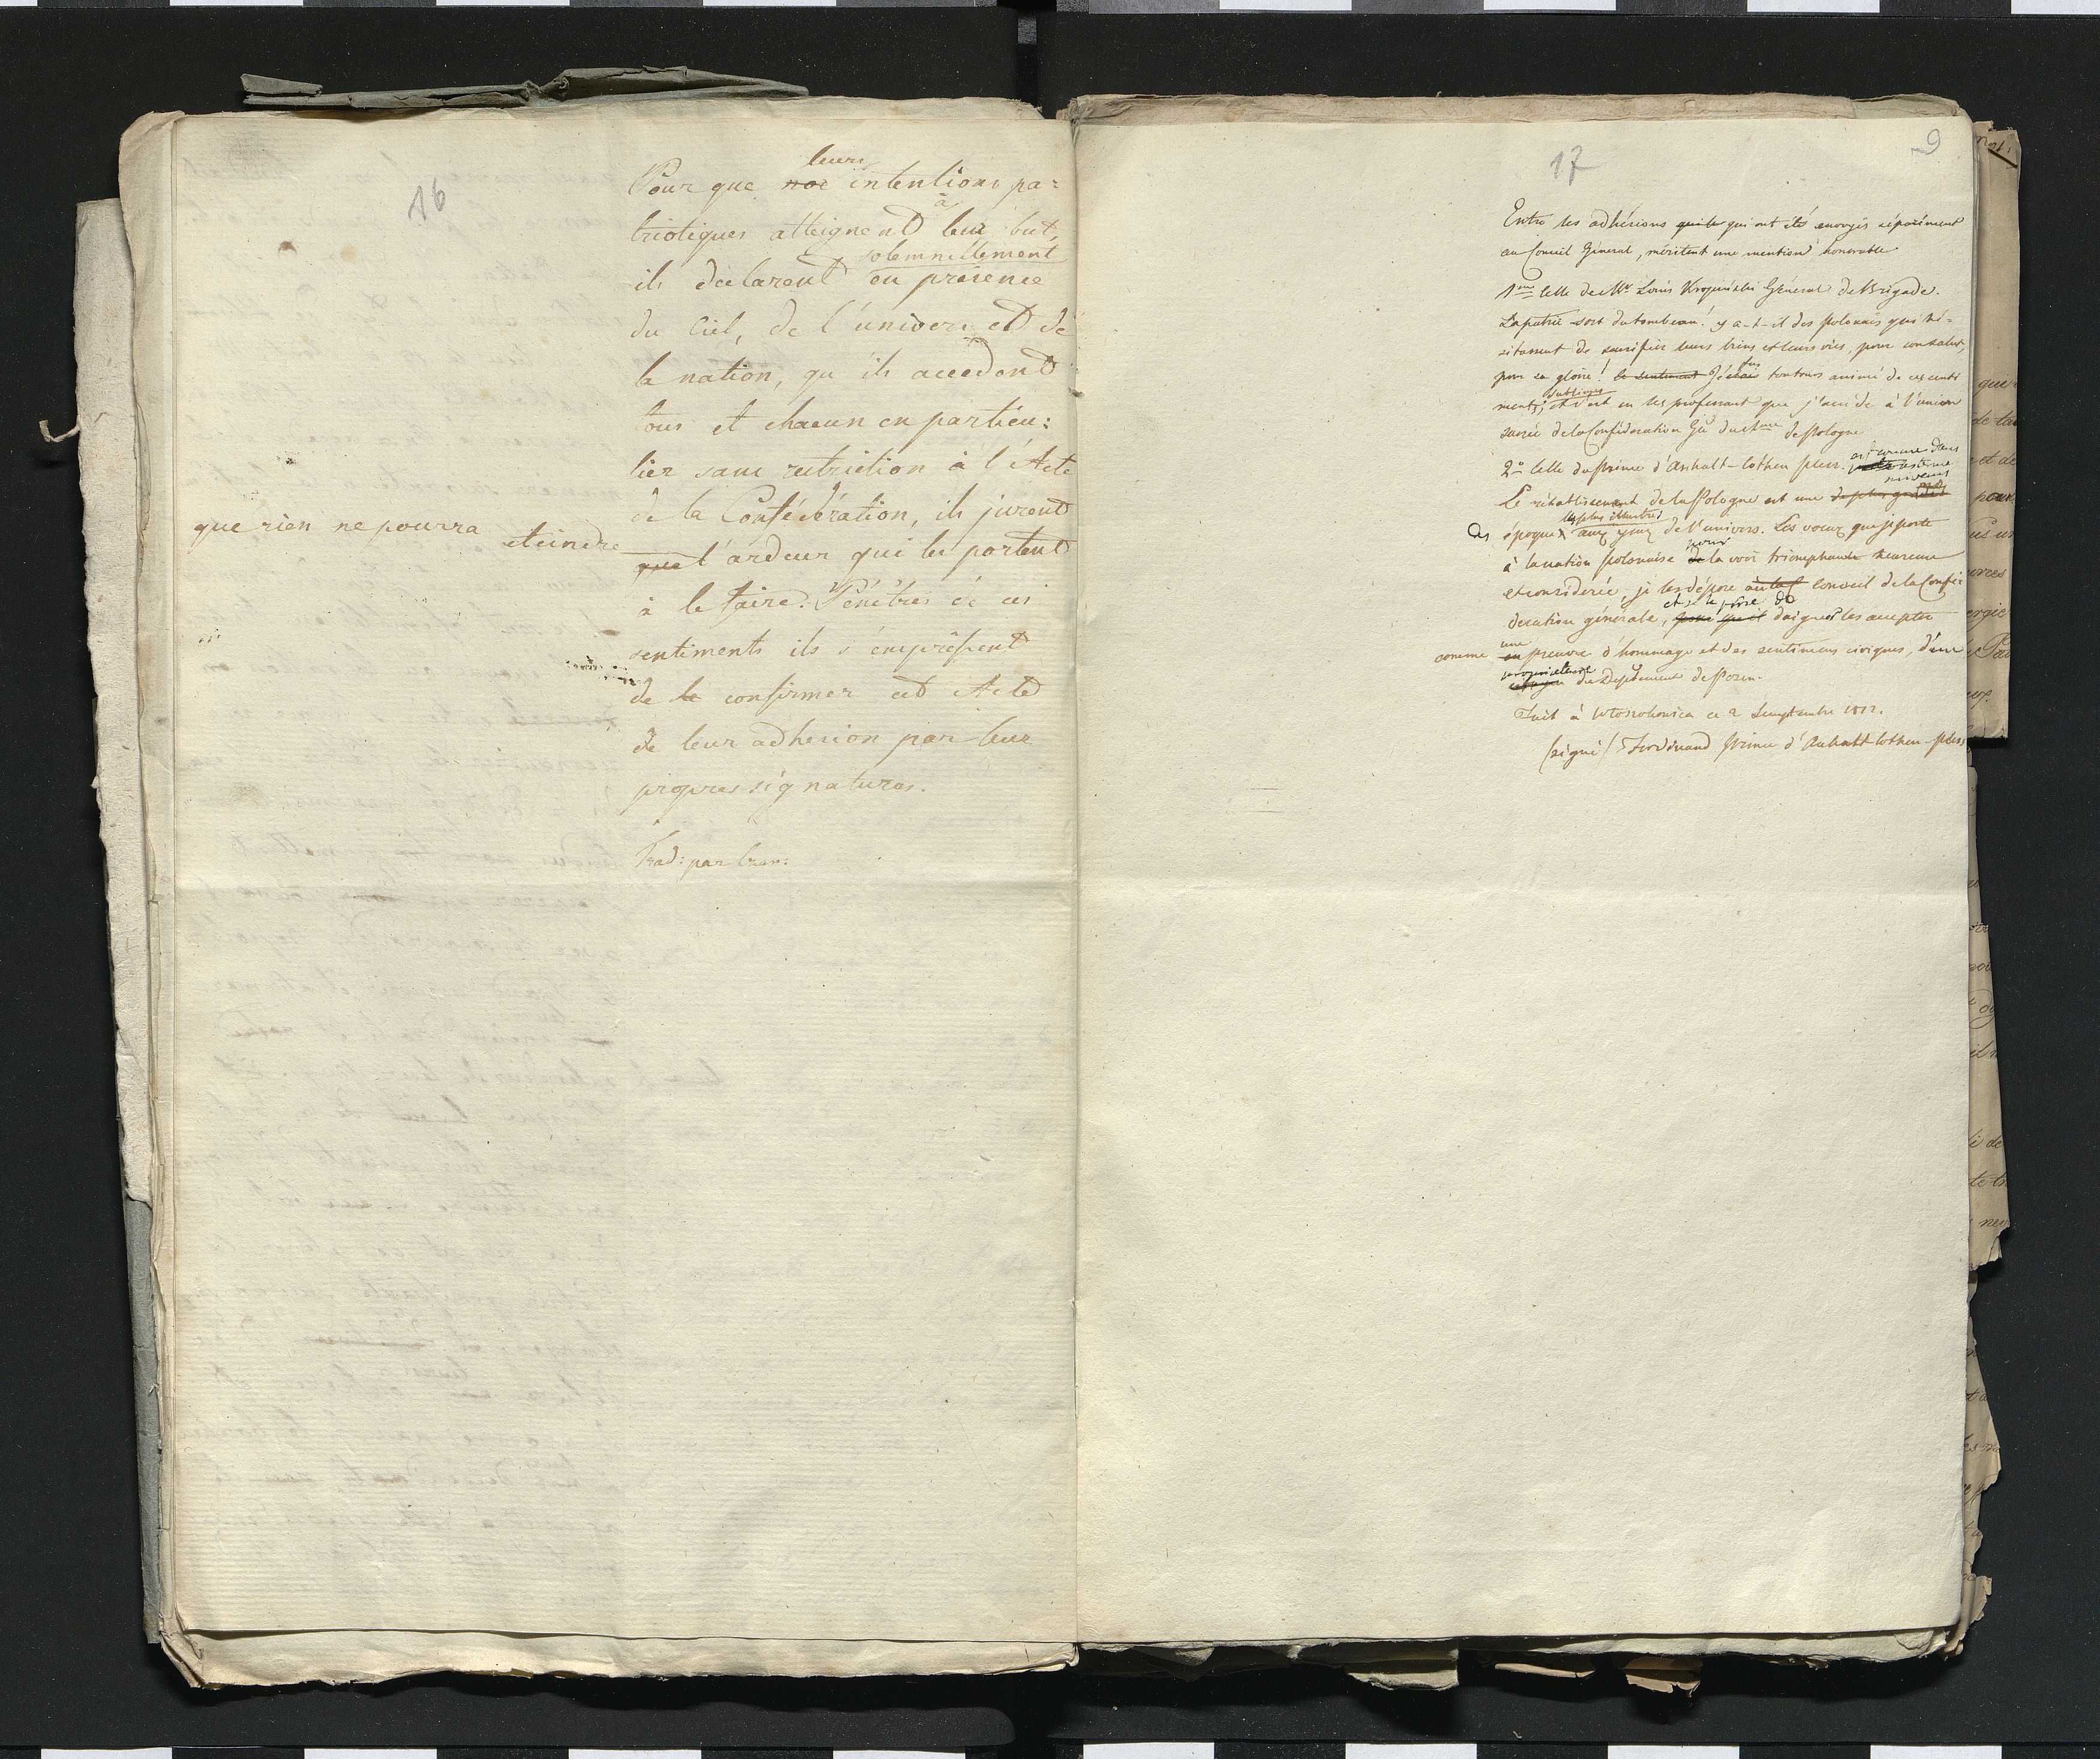 16
leurs
Pour que nos intentions pa:
à
triotiques atteignent leur but,
solemnellement
ils déclarent en présence
du Ciel, de l'univers et de
la nation, qu'ils accedent
tous et chacun en particu:
lier sans restriction à l'Acte
de la Confédération, ils jurent
que rien ne pourra eteindre
que l'ardeur qui les portent
à le faire. Pénétrés de ces
sentiments ils s'empressent
de le confirmer cet Acte
de leur adhesion par leur
propres signatures.
Trad: par
17
9
Entre les adhésions qui ont été envoyés séparément
au Conseil Général, méritent une mention honorable
1me celle de Mr Louis Kropiński Général de Brigade.
La patrie sort du tombeau! y a-t-il des Polonais qui hé-
sitassent de sacrifier leurs biens et leurs vies, pour son salut,
pour sa gloire! le sentiment J'étais toutours animé de ces senti
sublimes
ments, et c'est en les professant que j'accède à l'union
sacrée de la Confédération Gle du Rme de Pologne
2o celle du Prince d'Anhalt-Cothen Pless.
Le rétablissement de la Pologne est une de plus grandes
les plus illustres
des époques aux yeux de l'univers. Les voeux que je porte
pour
à la nation polonaise de la voir triomphante heureuse
et considerée, je les dépose au Conseil de la Confé
et je le prie de
deration générale, pour qu'il daigner les accepter
une
comme en preuve d'hommage et des sentimens civiques, d'un
proprietaire
citoyen du Departement de Posen.
Fait à Wloszakowica ce 2 Septembre 1812.
(signé) Ferdinand Prince d'Anhalt Cothen-Pless